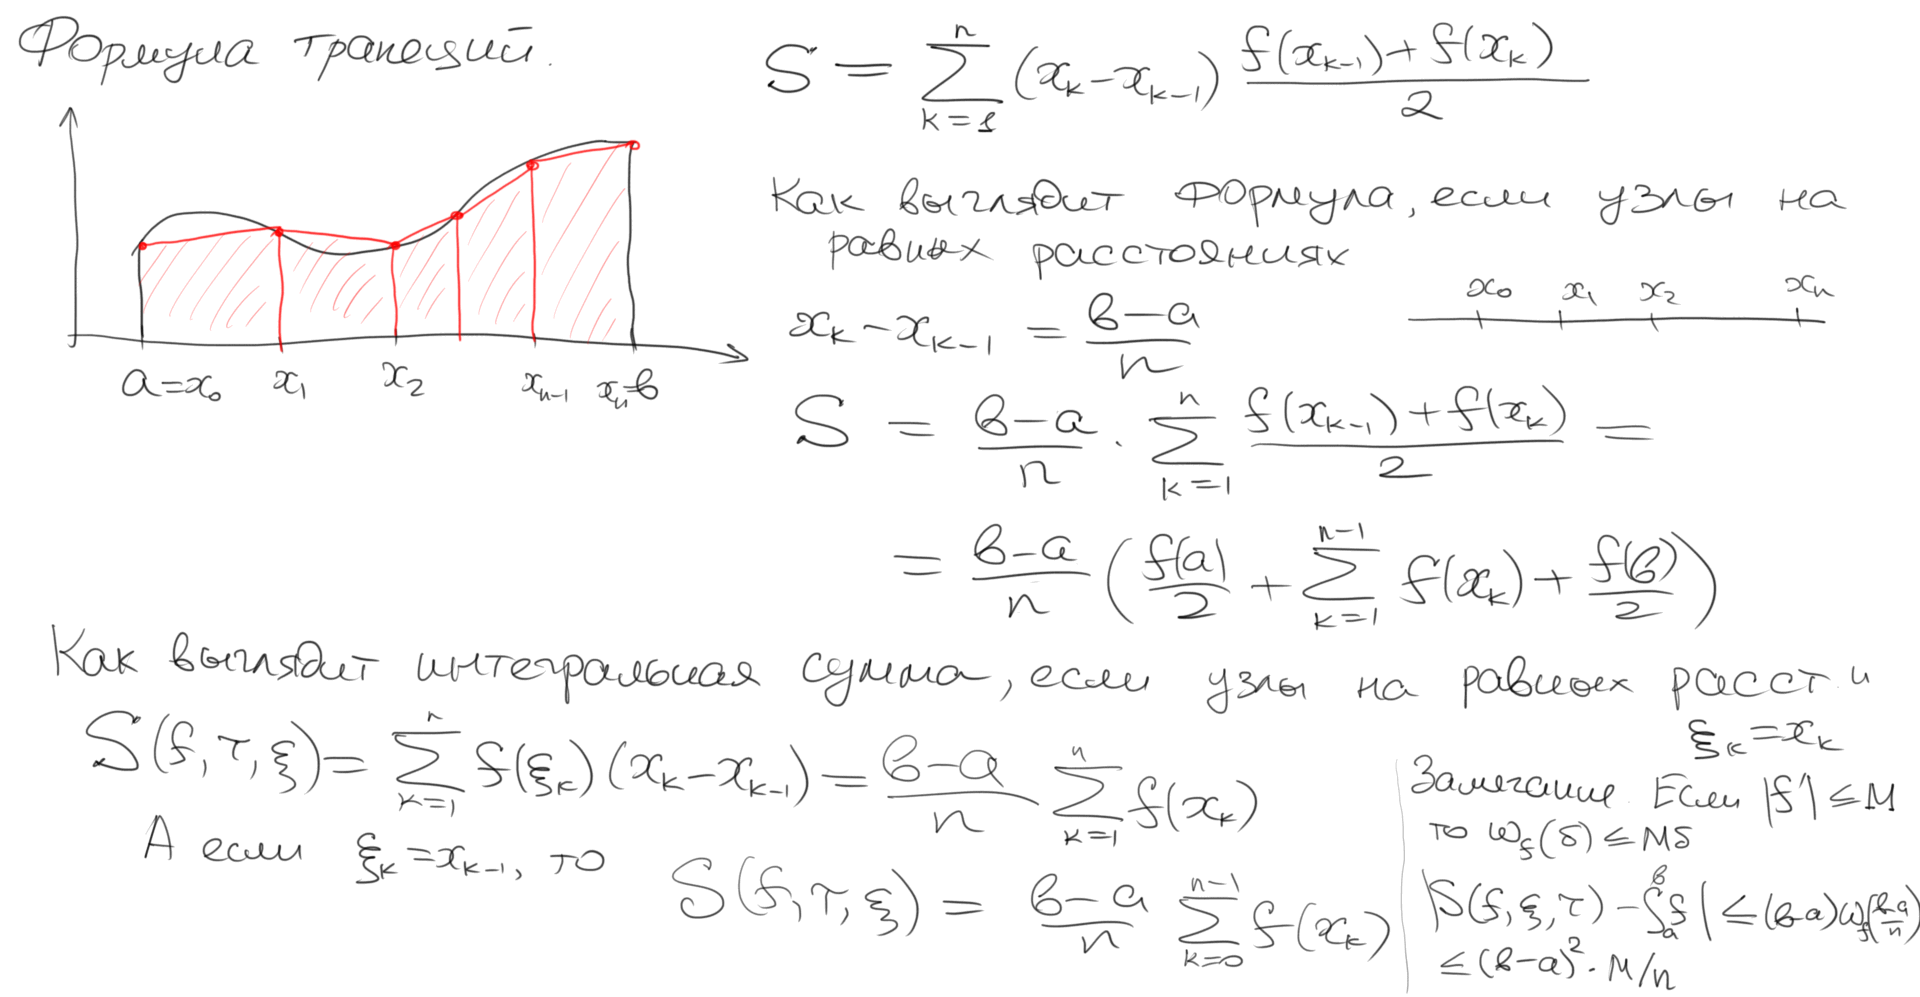 Формула трапеций.
S = ∑_{k=1}^{n} (x_k − x_{k−1}) (f(x_{k−1}) + f(x_k))/2
a = x_0 x_1 x_2 x_{n−1} x_n = b
Как выглядит формула, если узлы на
равных расстояниях
x_0 x_1 x_2 x_n
x_k − x_{k−1} = (b−a)/n
S = (b−a)/n · ∑_{k=1}^{n} (f(x_{k−1}) + f(x_k))/2 =
= (b−a)/n (f(a)/2 + ∑_{k=1}^{n−1} f(x_k) + f(b)/2)
Как выглядит интегральная сумма, если узлы на равных расст и
ξ_k = x_k
S(f, τ, ξ) = ∑_{k=1}^{n} f(ξ_k)(x_k − x_{k−1}) = (b−a)/n ∑_{k=1}^{n} f(x_k)
А если ξ_k = x_{k−1}, то
S(f, τ, ξ) = (b−a)/n ∑_{k=0}^{n−1} f(x_k)
Замечание. Если |f'| ≤ M
то ω_f(δ) ≤ Mδ
|S(f, ξ, τ) − ∫_a^b f| ≤ (b−a)ω_f((b−a)/n)
≤ (b−a)² · M/n